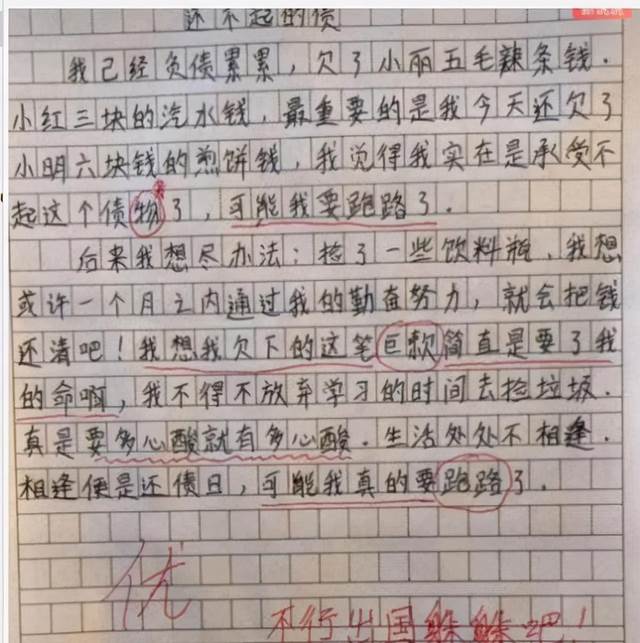 还不起的债
我已经负债累累，欠了小丽五毛辣条钱.
小红三块的汽水钱，最重要的是我今天还欠了
小明六块钱的煎饼钱，我觉得我实在是承受不
起这个债物了，可能我要跑路了.
后来我想尽办法：捡了一些饮料瓶、我想
或许一个月之内通过我的勤奋努力，就会把钱
还清吧！我想我欠下的这笔巨款简直是要了我
的命啊，我不得不放弃学习的时间去捡垃圾.
真是要多心酸就有多心酸.生活处处不相逢.
相逢便是还债日，可能我真的要跑路了.
优
不行出国躲躲吧！